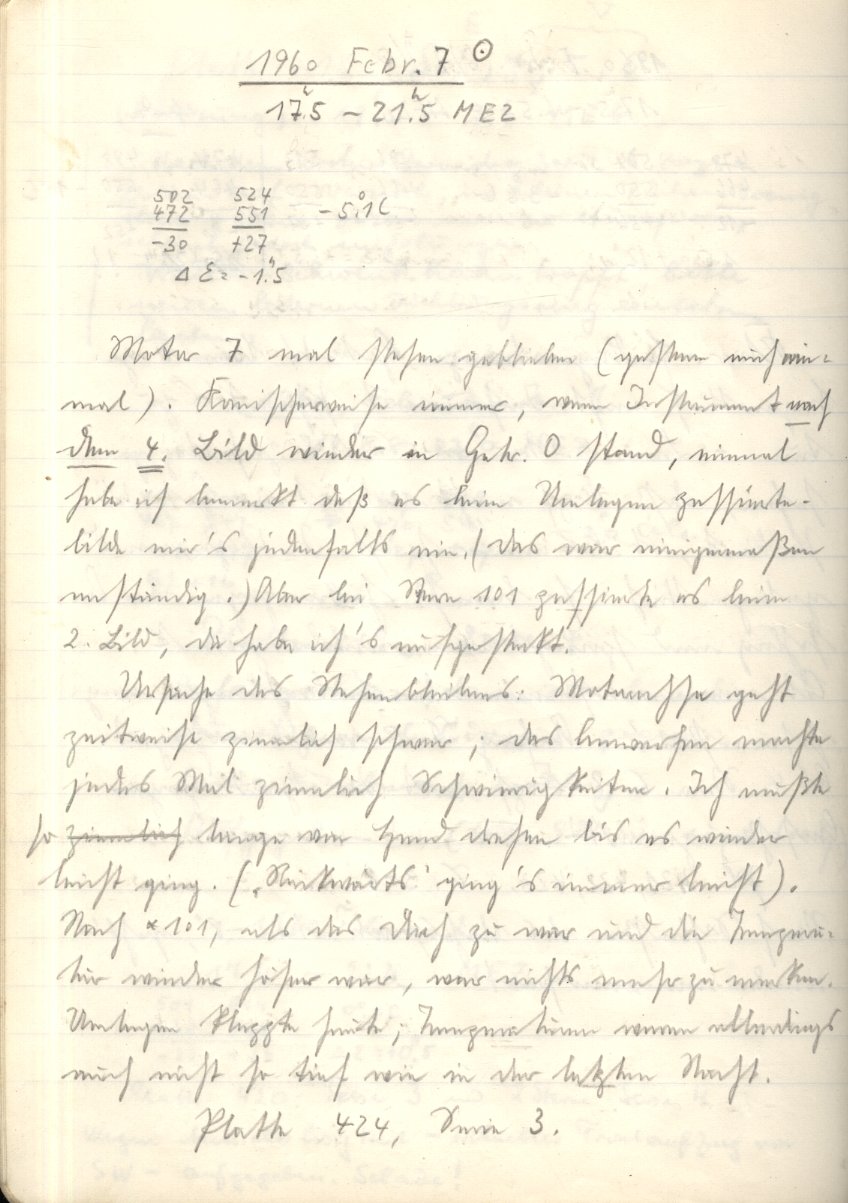 1960 Febr. 7 ☉
17ʰ.5 – 21ʰ.5 MEZ
502 524
472 551 – 5°.1 C
-30 +27
Δ Ɛ = -1".5
Motor 7 mal stehen geblieben (gestern auch ein-
mal). Komischerweise immer, wenn Instrument nach
dem 4. Bild wieder in Getr. 0 stand, einmal
habe ich bemerkt daß es beim Umlegen passierte -
bilde mir's jedenfalls ein. (Das war einigermaßen
unständig.) Aber bei Stern 101 passierte es beim
2. Bild, da habe ich's aufgesteckt.
Ursache des Stehenbleibens: Motorachse geht
zeitweise ziemlich schwer; das Anwerfen machte
jedes Mal ziemlich Schwierigkeiten. Ich mußte
so ziemlich lange von Hand drehen bis es wieder
leicht ging. („Rückwärts" ging's immer leicht).
Nach * 101, als das Dach zu war und die Tempera-
tur wieder höher war, war nichts mehr zu merken.
Umlegen klappte heute; Temperaturen waren allerdings
auch nicht so tief wie in der letzten Nacht.
Platte 424, Serie 3.